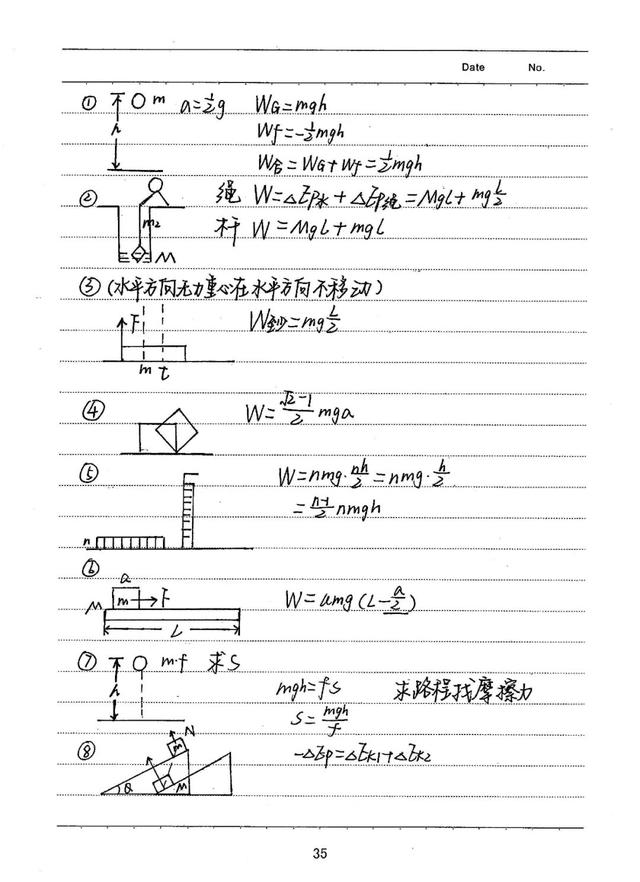 Date No.
① h m a=½g W_G=mgh
W_f=-½mgh
W合=W_G+W_f=½mgh
② 绳 W=△Ep水+△Ep绳=Mgl+mg l/2
m₂ M
杆 W=Mgl+mgl
③ (水平方向无力重心在水平方向不移动)
F W至少=mg L/2
m t
④ W=(√2-1)/2 mga
⑤ W=nmg·nh/2=nmg·h/2
n =(n-1)/2 nmgh
⑥
a
M m F W=umg(L-a/2)
L
⑦ h m·f 求S
mgh=fs 求路程找摩擦力
S=mgh/f
⑧ N m -△Ep=△Ek1+△Ek2
θ M
35